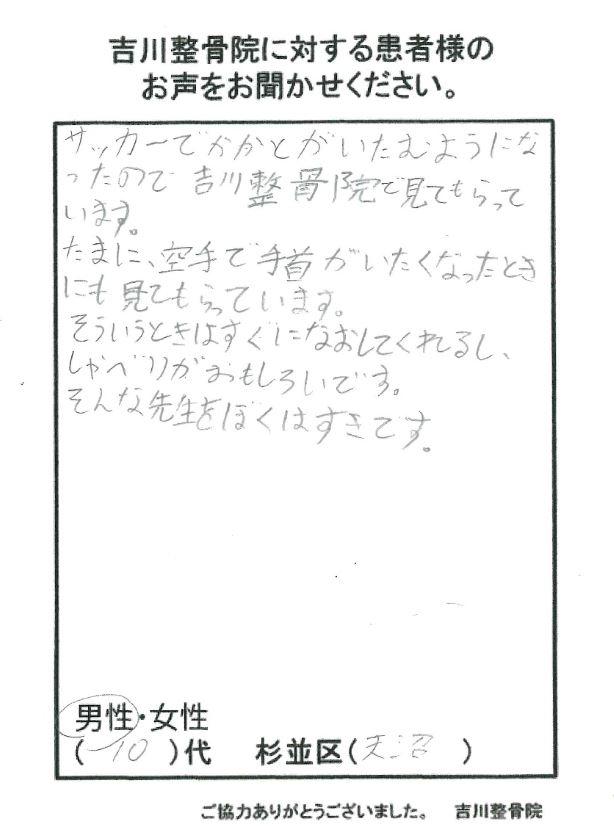 吉川整骨院に対する患者様の
お声をお聞かせください。
サッカーでかかとがいたむようにな
ったので吉川整骨院で見てもらって
います。
たまに、空手で手首がいたくなったとき
にも見てもらっています。
そういうときはすぐになおしてくれるし、
しゃべりがおもしろいです。
そんな先生をぼくはすきです。
男性・女性
(10)代 杉並区(天沼)
ご協力ありがとうございました。 吉川整骨院